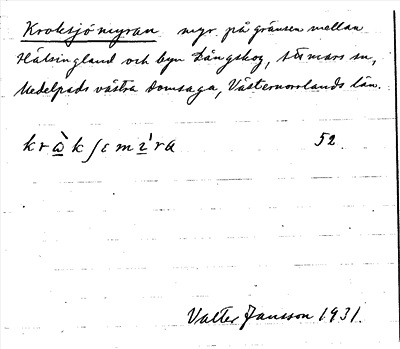 Kroksjömyran myr på gränsen mellan
Hälsingland och byn Långskog, Attmars sn,
Medelpads västra domsaga, Västernorrlands län.
52.
Valter Jansson 1931.